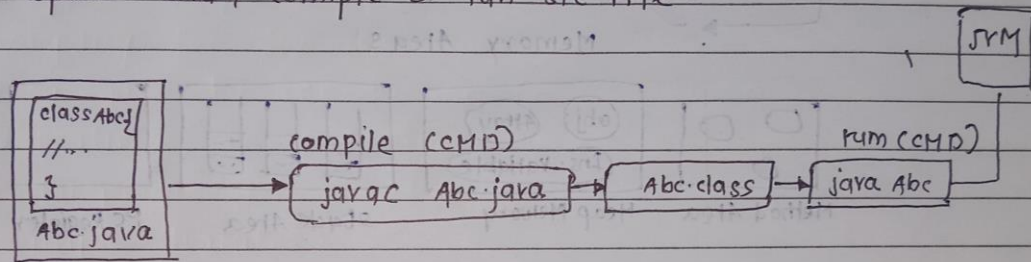 compile & run
JVM
class Abc{
//...
}
Abc.java
compile (CMD)
javac Abc.java
Abc.class
run (CMD)
java Abc